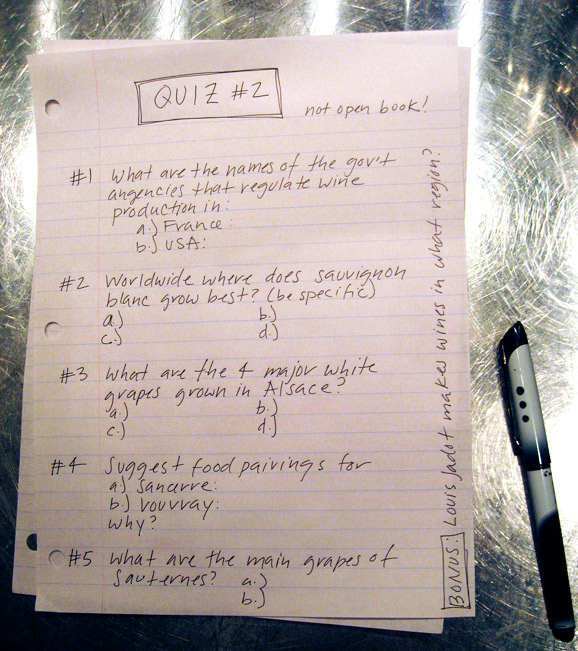 QUIZ #2
not open book!
#1 What are the names of the gov't
angencies that regulate wine
production in:
a.) France:
b.) USA:
#2 Worldwide where does sauvignon
blanc grow best? (be specific)
a.) b.)
c.) d.)
#3 What are the 4 major white
grapes grown in Alsace?
a.) b.)
c.) d.)
#4 Suggest food pairings for
a.) Sancerre:
b.) Vouvray:
Why?
#5 What are the main grapes of
Sauternes? a.)
b.)
BONUS: Louis Jadot makes wines in what region?